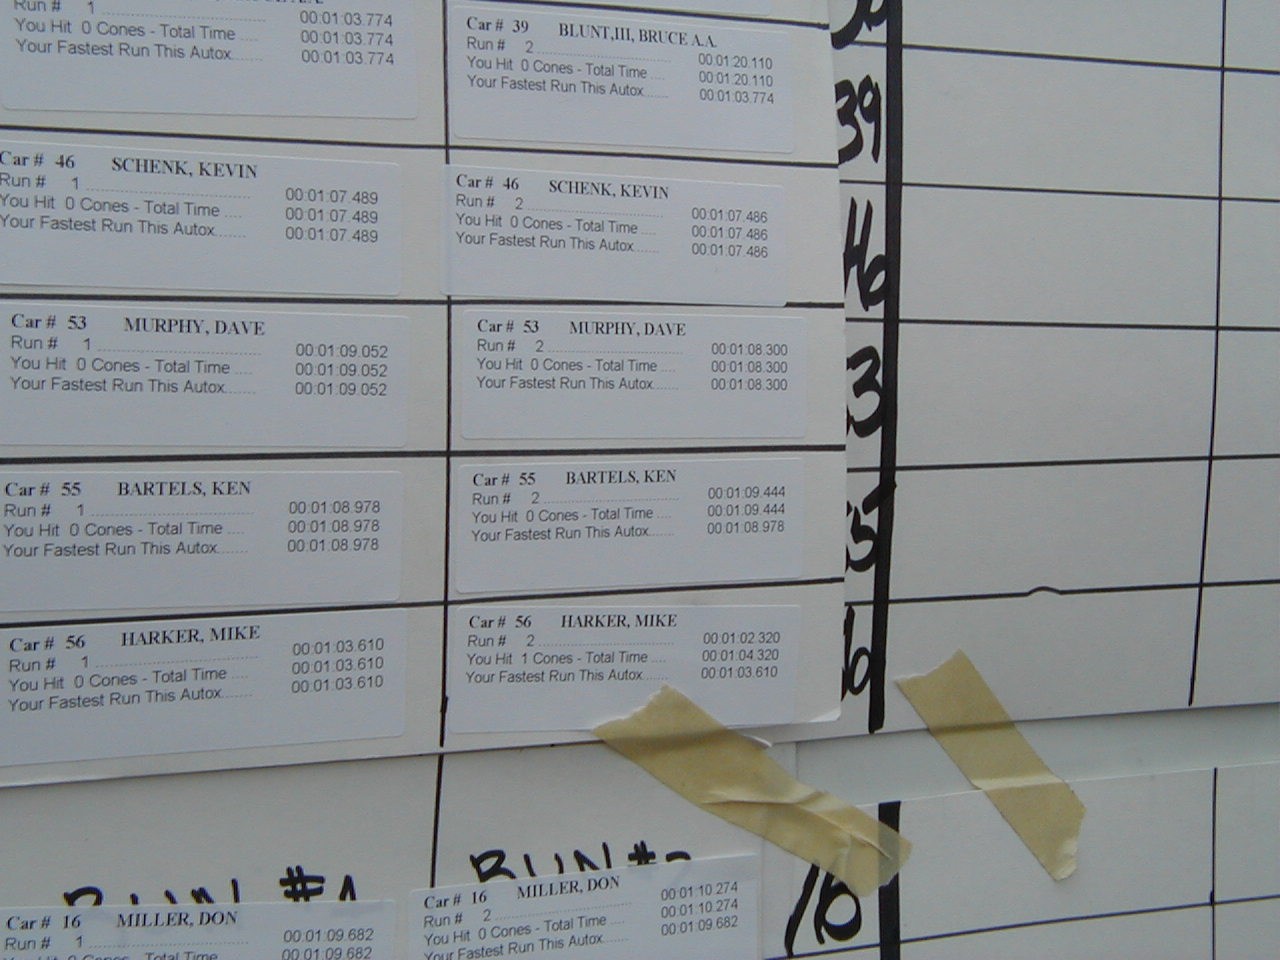 Run # 1 00:01:03.774
You Hit 0 Cones - Total Time 00:01:03.774
Your Fastest Run This Autox 00:01:03.774
Car # 39 BLUNT,III, BRUCE A.A.
Run # 2 00:01:20.110
You Hit 0 Cones - Total Time 00:01:20.110
Your Fastest Run This Autox 00:01:03.774
39
Car # 46 SCHENK, KEVIN
Run # 1 00:01:07.489
You Hit 0 Cones - Total Time 00:01:07.489
Your Fastest Run This Autox 00:01:07.489
Car # 46 SCHENK, KEVIN
Run # 2 00:01:07.486
You Hit 0 Cones - Total Time 00:01:07.486
Your Fastest Run This Autox 00:01:07.486
46
Car # 53 MURPHY, DAVE
Run # 1 00:01:09.052
You Hit 0 Cones - Total Time 00:01:09.052
Your Fastest Run This Autox 00:01:09.052
Car # 53 MURPHY, DAVE
Run # 2 00:01:08.300
You Hit 0 Cones - Total Time 00:01:08.300
Your Fastest Run This Autox 00:01:08.300
3
Car # 55 BARTELS, KEN
Run # 1 00:01:08.978
You Hit 0 Cones - Total Time 00:01:08.978
Your Fastest Run This Autox 00:01:08.978
Car # 55 BARTELS, KEN
Run # 2 00:01:09.444
You Hit 0 Cones - Total Time 00:01:09.444
Your Fastest Run This Autox 00:01:08.978
5
Car # 56 HARKER, MIKE
Run # 1 00:01:03.610
You Hit 0 Cones - Total Time 00:01:03.610
Your Fastest Run This Autox 00:01:03.610
Car # 56 HARKER, MIKE
Run # 2 00:01:02.320
You Hit 1 Cones - Total Time 00:01:04.320
Your Fastest Run This Autox 00:01:03.610
6
RUN #1
RUN #2
Car # 16 MILLER, DON
Run # 1 00:01:09.682
You Hit 0 Cones - Total Time 00:01:09.682
Car # 16 MILLER, DON
Run # 2 00:01:10.274
You Hit 0 Cones - Total Time 00:01:10.274
Your Fastest Run This Autox 00:01:09.682
16